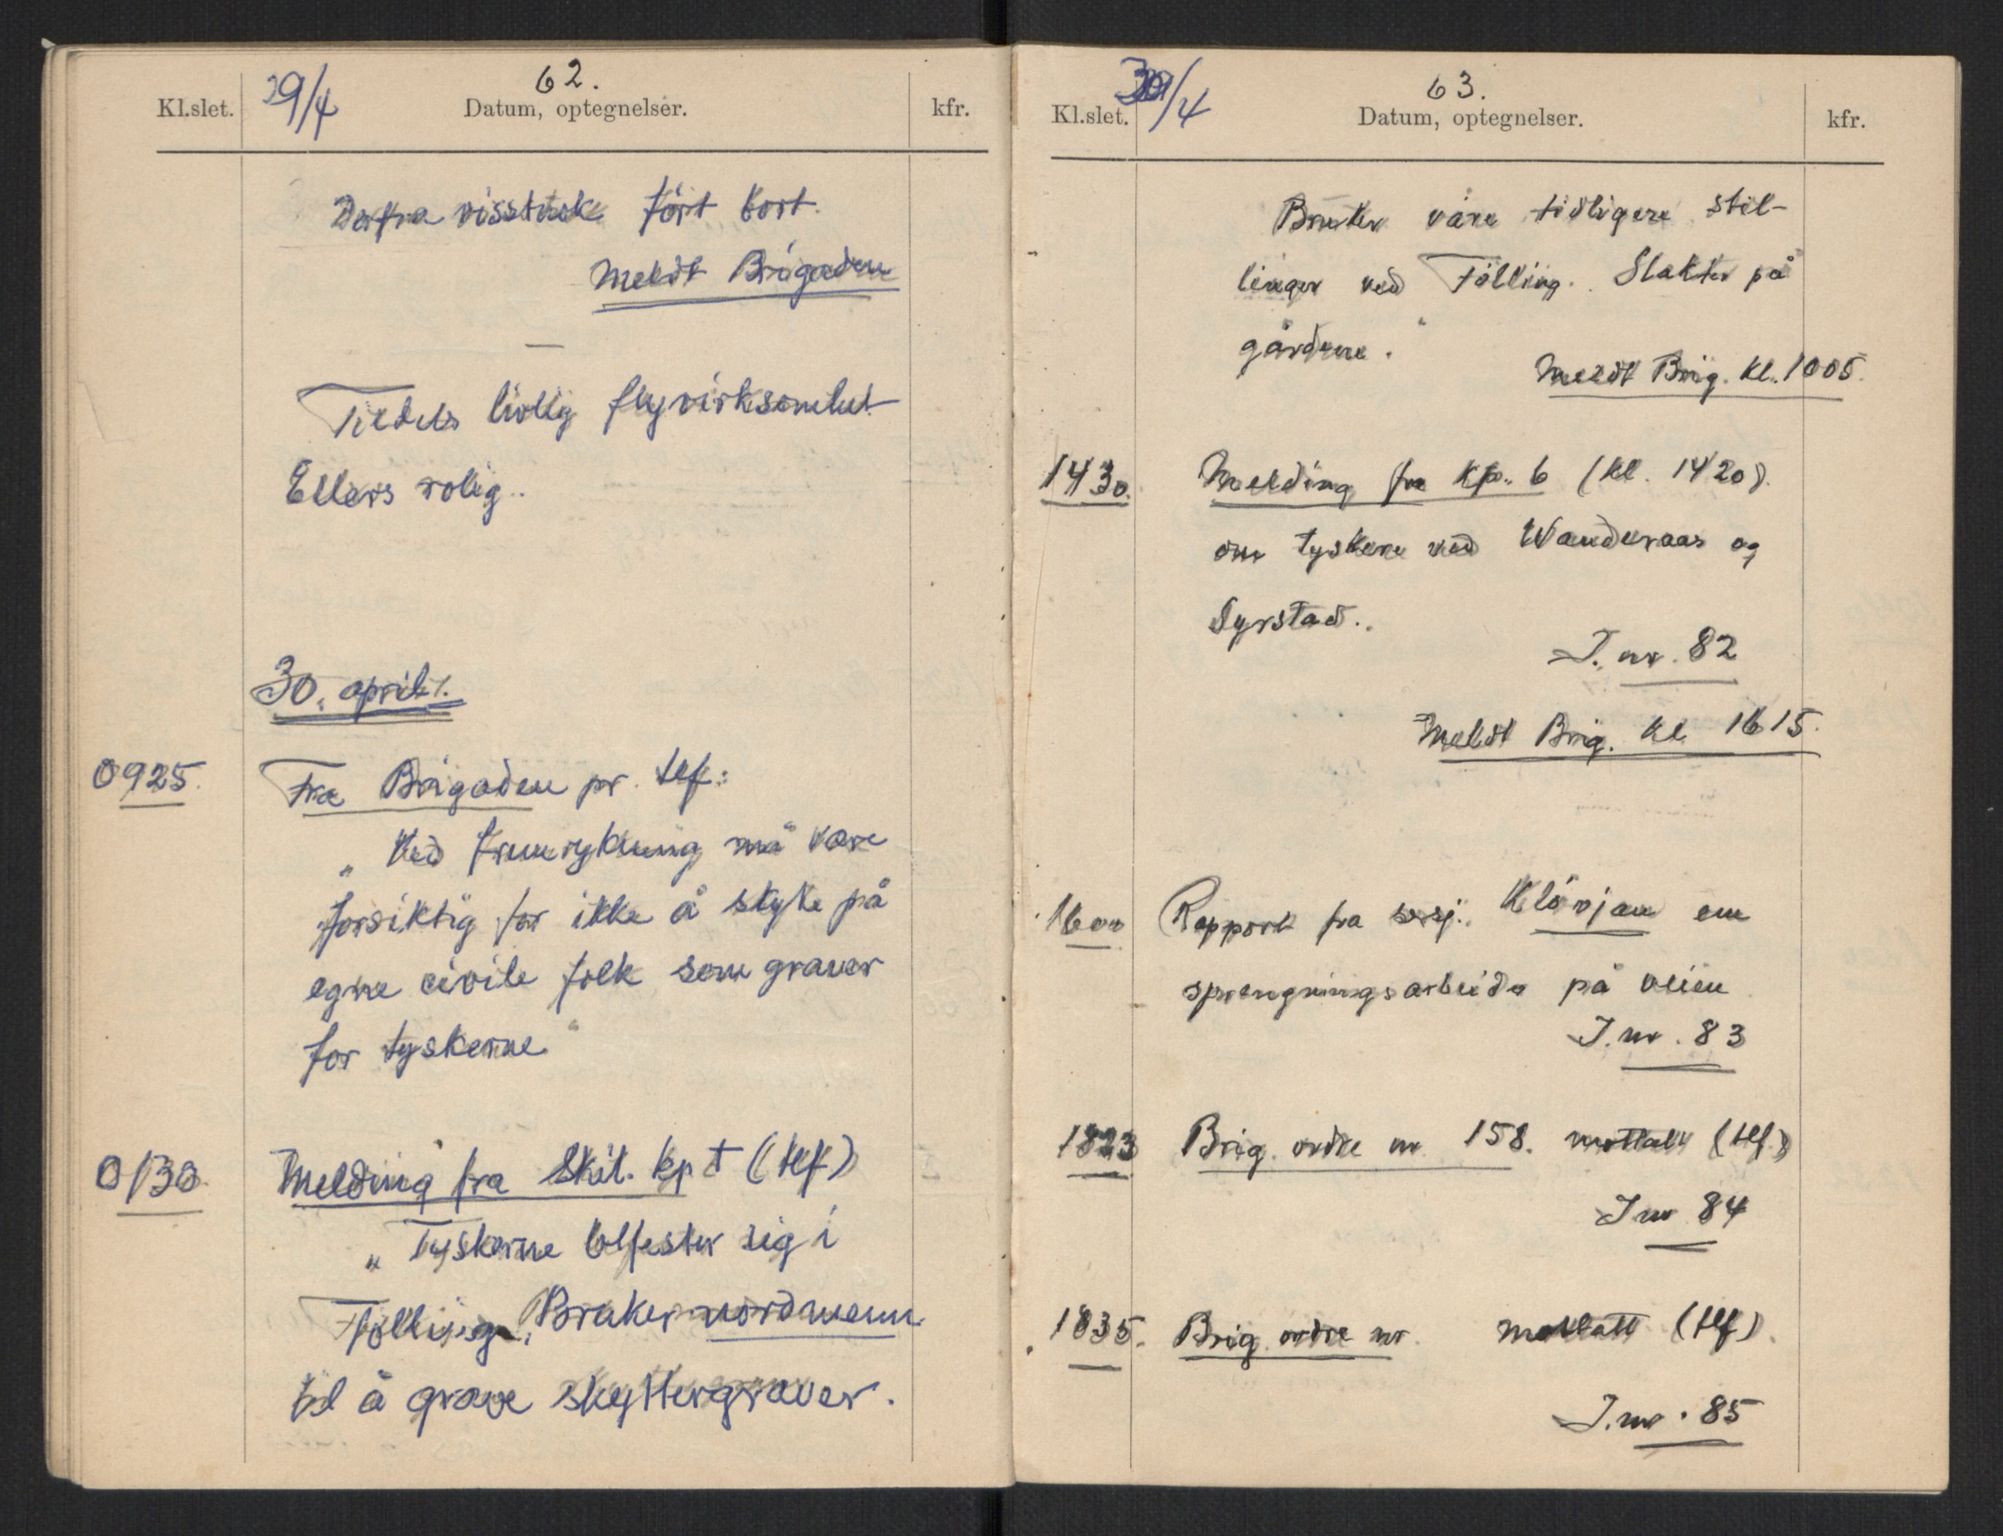 62.
29/4
Kl.slet. Datum, optegnelser. kfr.
Derfra visstnok ført bort.
Meldt Brigaden
—
Tildels livlig flyvirksomhet
Ellers rolig.
30. april.
0925. Fra Brigaden pr. tlf:
„Ved fremrykning må være
forsiktig for ikke å skyte på
egne civile folk som graver
for tyskerne"
Melding fra Skil. kp t (tlf)
„Tyskerne befester sig i
Følling. Bruker nordmenn
til å grave skyttergraver.
63.
30/4
Kl.slet. Datum, optegnelser. kfr.
Bruker våre tidligere stil-
linger ved Følling. Slakter på
gårdene."
Meldt Brig. kl. 1005.
1430. Melding fra Kp. 6 (kl. 1420).
om tyskere ved Wanderaas og
Dyrstad.
J. nr. 82
Meldt Brig. kl 1615.
1600 Rapport fra sersj. Kløvjan om
sprengningsarbeider på veien
J. nr. 83
1823 Brig. ordre nr 158. mottatt (tlf.)
J nr 84
1835. Brig. ordre nr. mottatt (tlf).
J. nr. 85